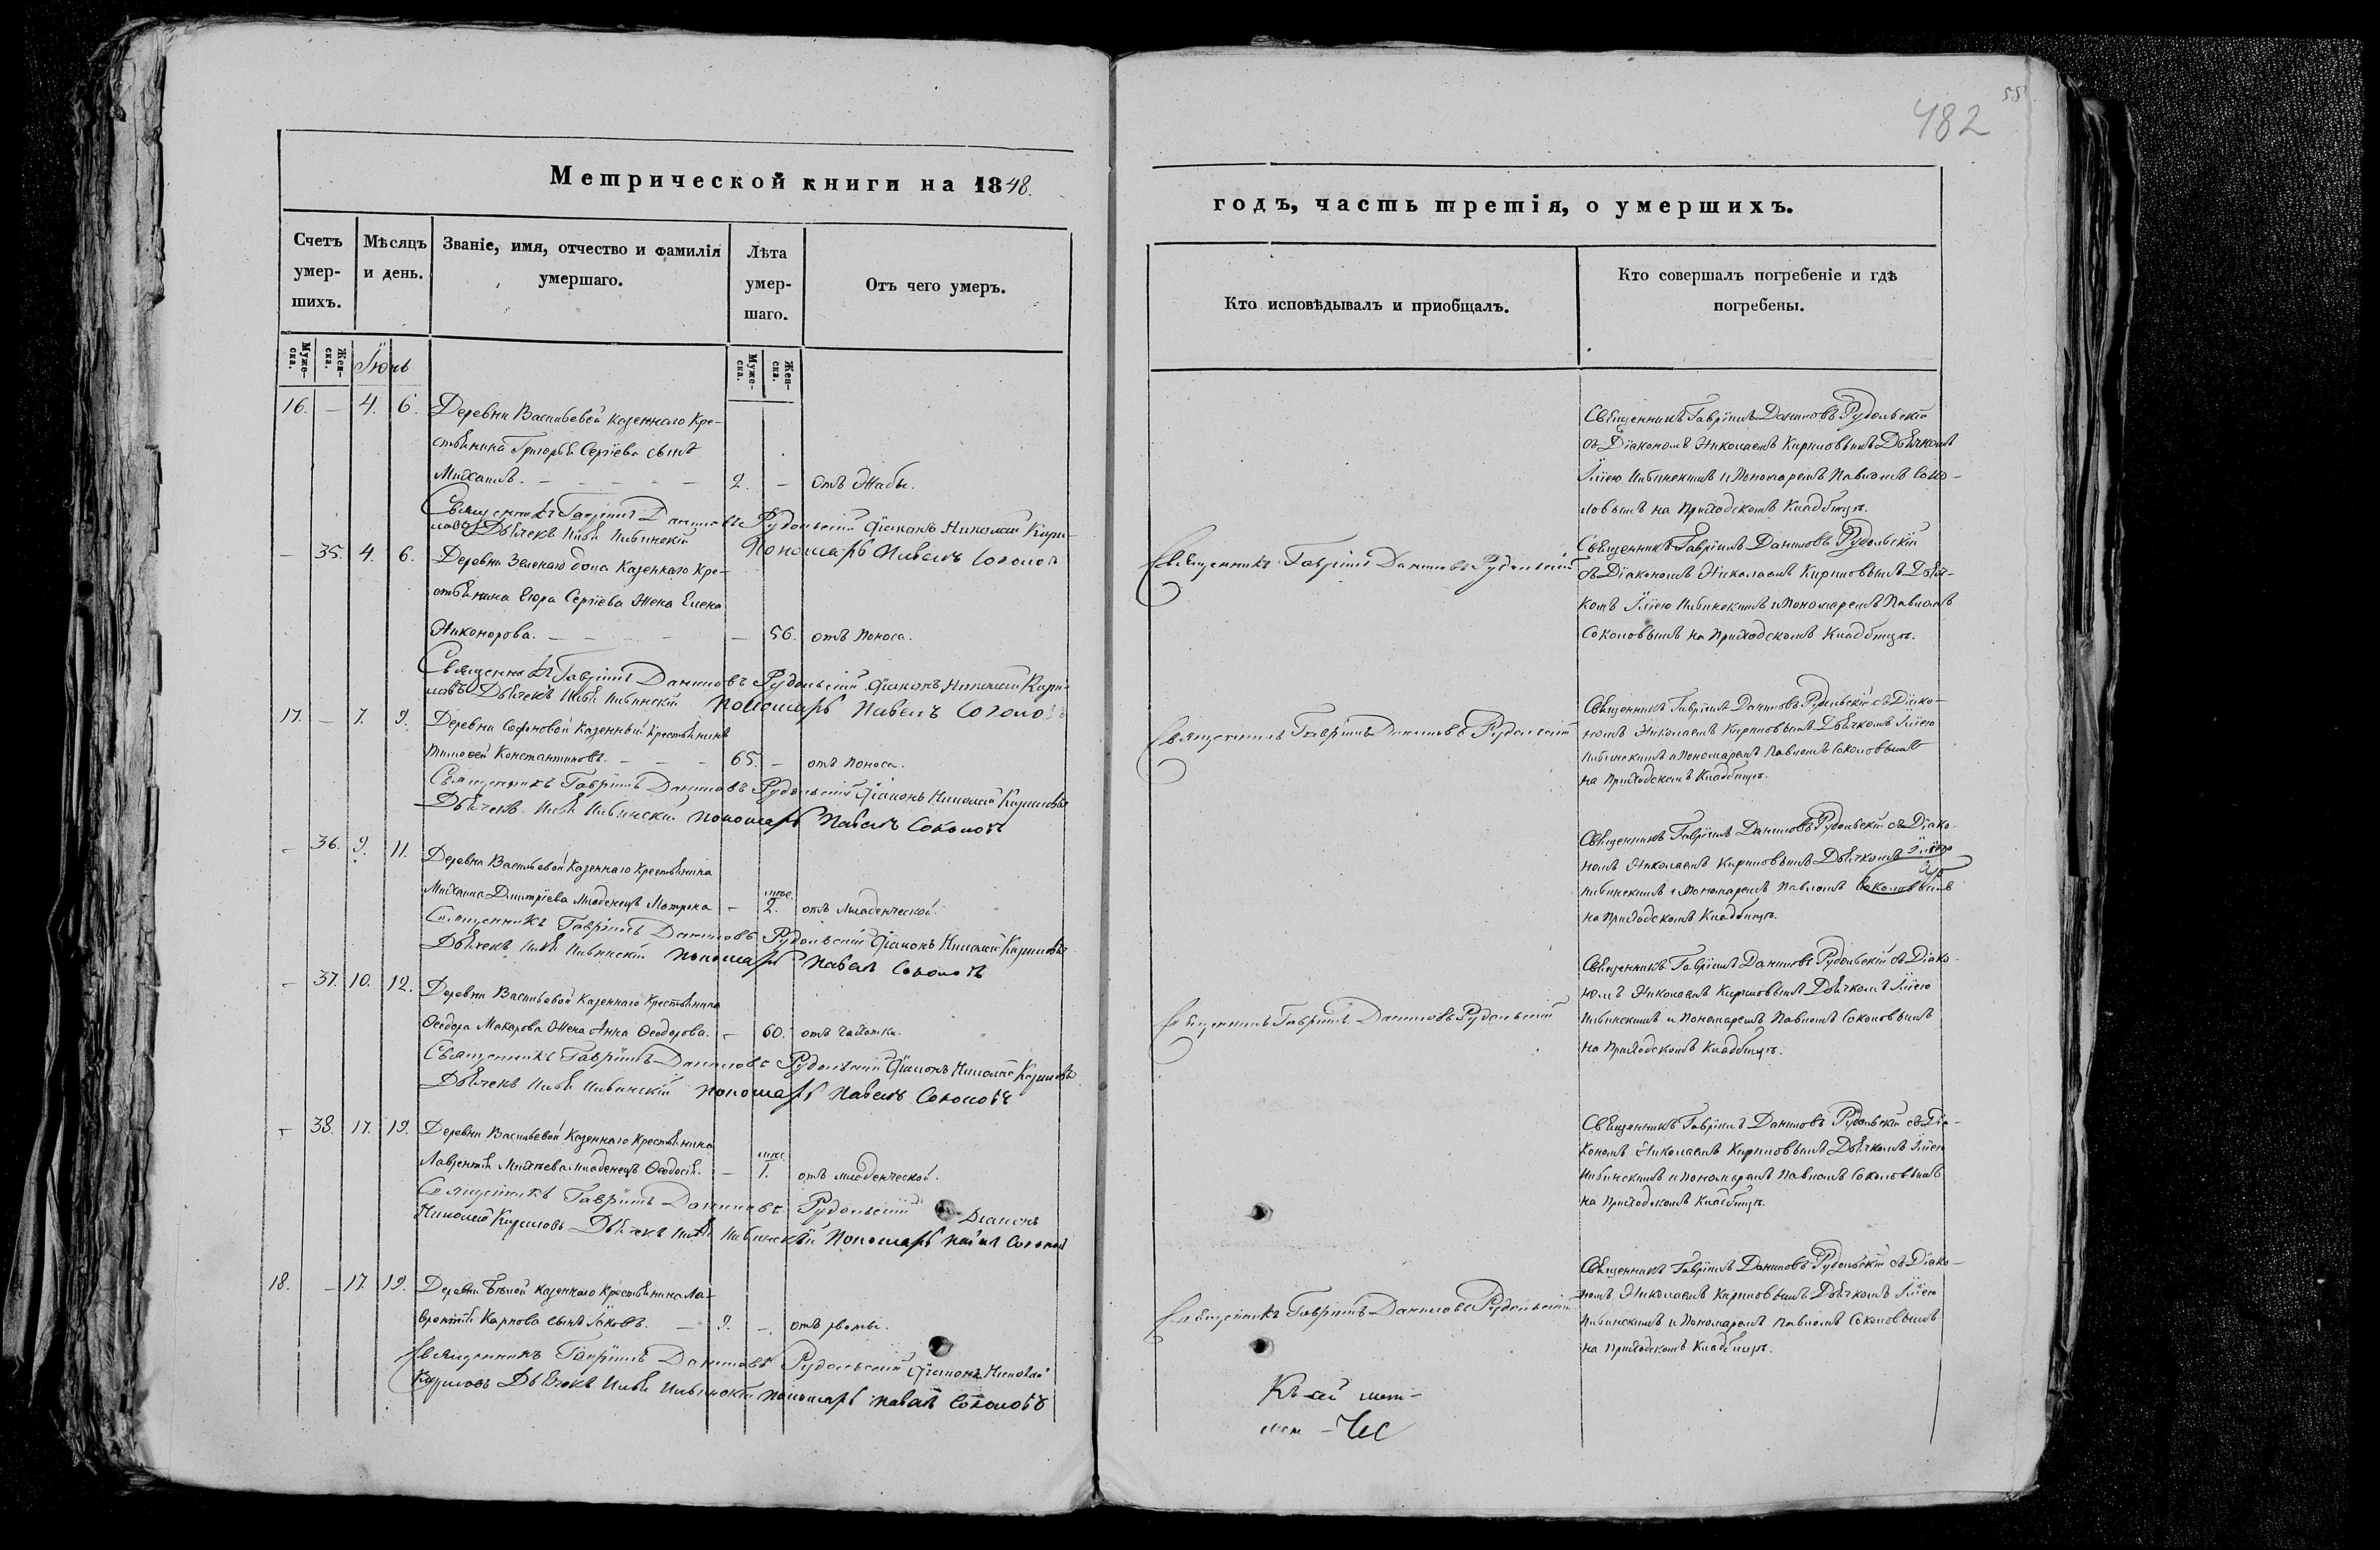 482
55
Метрической книги на 1848.
годъ, часть третія, о умершихъ.
Счетъ умер-шихъ.
Мѣсяцъ и день.
Званіе, имя, отчество и фамилія умершаго.
Лѣта умер-шаго.
Отъ чего умеръ.
Кто исповѣдывалъ и приобщалъ.
Кто совершалъ погребеніе и гдѣ погребены.
Муже-ска.
Жен-ска.
Іюнь
Муже-ска.
Жен-ска.
16. – 4. 6. Деревни Васильевой казеннаго Кре-
стьянина Григорья Сергіева сынъ
Михаилъ. 2. – отъ Жабы.
Священникъ Гавріилъ Даниловъ Рудольскій Діаконъ Николай Кири-
ловъ Дьячекъ Илья Пибинскій Пономарь Павелъ Соколов
Священникъ Гавріилъ Даниловъ Рудольскій
съ Діакономъ Николаемъ Кириловымъ Дьячкомъ
Ильею Пибинскимъ и Пономаремъ Павломъ Соко-
ловымъ на Приходскомъ Кладбищѣ.
– 35. 4. 6. Деревни казеннаго Кре-
стьянина Егора Сергіева Жена Елена
Никонорова. – 56. отъ Поноса.
Священникъ Гавріилъ Даниловъ Рудольскій Діаконъ Николай Кири-
ловъ Дьячекъ Илья Пибинскій Пономарь Павелъ Соколовъ
Священникъ Гавріилъ Даниловъ Рудольскій
Священникъ Гавріилъ Даниловъ Рудольскій
съ Діакономъ Николаемъ Кириловымъ Дьяч-
комъ Ильею Пибинскимъ и Пономаремъ Павломъ
Соколовымъ на Приходскомъ Кладбищѣ.
17. – 7. 9. Деревни Софоновой Казенный Крестьянинъ
Тимофей Константиновъ. 65. – отъ Поноса.
Священникъ Гавріилъ Даниловъ Рудольскій Діаконъ Николай Кириловъ
Дьячекъ Илья Пибинскій Пономарь Павелъ Соколовъ
Священникъ Гавріилъ Даниловъ Рудольскій
Священникъ Гавріилъ Даниловъ Рудольскій съ Діако-
номъ Николаемъ Кириловымъ Дьячкомъ Ильею
Пибинскимъ и Пономаремъ Павломъ Соколовымъ
на Приходскомъ Кладбищѣ.
– 36. 9. 11. Деревни Васильевой Казеннаго Крестьянина
Михаила Дмитріева младенецъ Матрона – 2. отъ Младенческой.
Священникъ Гавріилъ Даниловъ Рудольскій Діаконъ Николай Кириловъ
Дьячекъ Илья Пибинскій Пономарь Павелъ Соколовъ
Священникъ Гавріилъ Даниловъ Рудольскій съ Діако-
номъ Николаемъ Кириловымъ Дьячкомъ Ильею
Пибинскимъ и Пономаремъ Павломъ Соколовымъ
на Приходскомъ Кладбищѣ.
– 37. 10. 12. Деревни Васильевой Казеннаго Крестьянина
Ѳеодора Макарова Жена Анна Ѳеодорова. – 60. отъ Чахотки.
Священникъ Гавріилъ Даниловъ Рудольскій Діаконъ Николай Кириловъ
Дьячекъ Илья Пибинскій Пономарь Павелъ Соколовъ
Священникъ Гавріилъ Даниловъ Рудольскій
Священникъ Гавріилъ Даниловъ Рудольскій съ Діако-
номъ Николаемъ Кириловымъ Дьячкомъ Ильею
Пибинскимъ и Пономаремъ Павломъ Соколовымъ
на Приходскомъ Кладбищѣ.
– 38. 17. 19. Деревни Васильевой Казеннаго Крестьянина
Лаврентія младенецъ Ѳеодосія. – 1. отъ младенческой.
Священникъ Гавріилъ Даниловъ Рудольскій Діаконъ
Николай Кириловъ Дьячекъ Илья Пибинскій Пономарь Павелъ Соколов
Священникъ Гавріилъ Даниловъ Рудольскій съ Діа-
кономъ Николаемъ Кириловымъ Дьячкомъ Ильею
Пибинскимъ и Пономаремъ Павломъ Соколовымъ
на Приходскомъ Кладбищѣ.
18. – 17. 19. Деревни Казеннаго Крестьянина Ла-
врентія Карпова сынъ Іаковъ. 9. – отъ рвоты.
Священникъ Гавріилъ Даниловъ Рудольскій Діаконъ Николай
Кириловъ Дьячекъ Илья Пибинскій Пономарь Павелъ Соколовъ
Священникъ Гавріилъ Даниловъ Рудольскій
Священникъ Гавріилъ Даниловъ Рудольскій съ Діако-
номъ Николаемъ Кириловымъ Дьячкомъ Ильею
Пибинскимъ и Пономаремъ Павломъ Соколовымъ
на Приходскомъ Кладбищѣ.